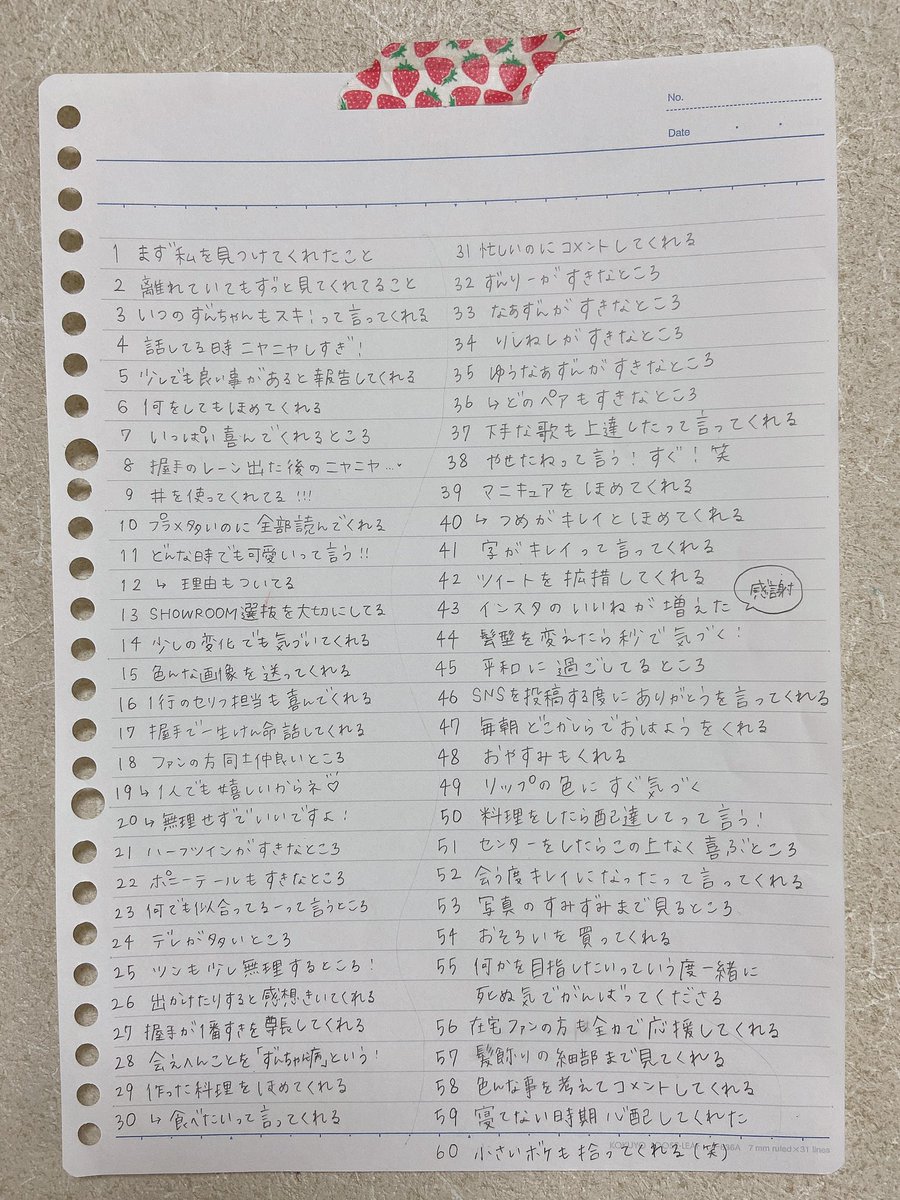 No.
Date
1 まず私を見つけてくれたこと
2 離れていてもずっと見てくれてること
3 いつのずんちゃんもスキ!って言ってくれる
4 話してる時ニヤニヤしすぎ!
5 少しでも良い事があると報告してくれる
6 何をしてもほめてくれる
7 いっぱい喜んでくれるところ
8 握手のレーン出た後のニヤニヤ…
9 #を使ってくれてる!!!
10 プラメ多いのに全部読んでくれる
11 どんな時でも可愛いって言う!!
12 ↳ 理由もついてる
13 SHOWROOM選抜を大切にしてる
14 少しの変化でも気づいてくれる
15 色んな画像を送ってくれる
16 1行のセリフ担当も喜んでくれる
17 握手で一生けん命話してくれる
18 ファンの方同士仲良いところ
19 ↳1人でも嬉しいからネ♡
20 ↳無理せずでいいですよ!
21 ハーフツインがすきなところ
22 ポニーテールもすきなところ
23 何でも似合ってるーって言うところ
24 デレが多いところ
25 ツンも少し無理するところ!
26 出かけたりすると感想きいてくれる
27 握手が1番すきを尊長してくれる
28 会えへんことを「ずんちゃん病」という!
29 作った料理をほめてくれる
30 ↳食べたいって言ってくれる
31 忙しいのにコメントしてくれる
32 ずんりーがすきなところ
33 なぁずんがすきなところ
34 りしねしがすきなところ
35 ゆうなぁずんがすきなところ
36 ↳どのペアもすきなところ
37 下手な歌も上達したって言ってくれる
38 やせたねって言う!すぐ!笑
39 マニキュアをほめてくれる
40 ↳つめがキレイとほめてくれる
41 字がキレイって言ってくれる
42 ツイートを拡措してくれる
43 インスタのいいねが増えた 感謝
44 髪型を変えたら秒で気づく!
45 平和に過ごしてるところ
46 SNSを投稿する度にありがとうを言ってくれる
47 毎朝どこかしらでおはようをくれる
48 おやすみもくれる
49 リップの色にすぐ気づく
50 料理をしたら配達してって言う!
51 センターをしたらこの上なく喜ぶところ
52 会う度キレイになったって言ってくれる
53 写真のすみずみまで見るところ
54 おそろいを買ってくれる
55 何かを目指したいっていう度一緒に
死ぬ気でがんばってくださる
56 在宅ファンの方も全力で応援してくれる
57 髪飾りの細部まで見てくれる
58 色んな事を考えてコメントしてくれる
59 寝てない時期心配してくれた
60 小さいボケも拾ってくれる(笑)
7 mm ruled×31 lines